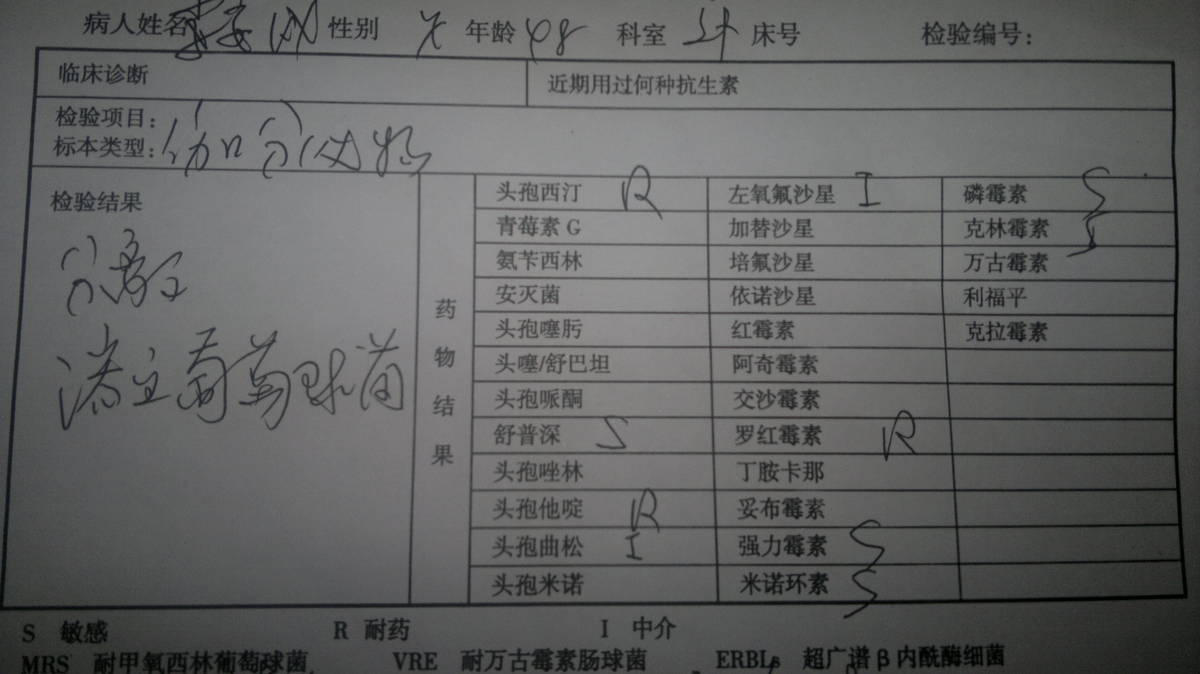 病人姓名 性别 年龄 48 科室 外 床号 检验编号:
临床诊断 近期用过何种抗生素
检验项目:
标本类型: 伤口分泌物
检验结果
分离
葡萄球菌
药物结果
头孢西汀 R 左氧氟沙星 I 磷霉素 S
青莓素 G 加替沙星 克林霉素
氨苄西林 培氟沙星 万古霉素
安灭菌 依诺沙星 利福平
头孢噻肟 红霉素 克拉霉素
头噻/舒巴坦 阿奇霉素
头孢哌酮 交沙霉素
舒普深 S 罗红霉素 R
头孢唑林 丁胺卡那
头孢他啶 R 妥布霉素
头孢曲松 I 强力霉素 S
头孢米诺 米诺环素 S
S 敏感 R 耐药 I 中介
MRS 耐甲氧西林葡萄球菌 VRE 耐万古霉素肠球菌 ERBLs 超广谱β内酰酶细菌